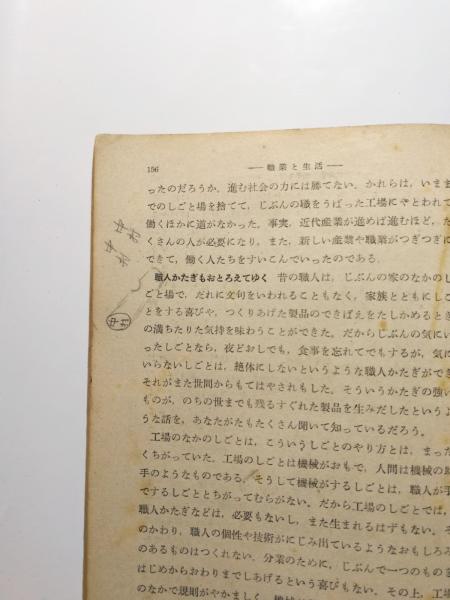 156
職業と生活
ったのだろうか。進む社会の力には勝てない。かれらは，いまま
でのしごと場を捨てて，じぶんの職をうばった工場にやとわれて
働くほかに道がなかった。事実，近代産業が進めば進むほど，た
くさんの人が必要になり，また，新しい産業や職業がつぎつぎに
できて，働く人たちをすいこんでいったのである。
職人かたぎもおとろえてゆく 昔の職人は，じぶんの家のなかのし
ごと場で，だれに文句をいわれることもなく，家族とともにしご
とをする喜びや，つくりあげた製品のできばえをたしかめるとき
の満ちたりた気持を味わうことができた。だからじぶんの気にい
ったしごとなら，夜どおしでも，食事を忘れてでもするが，気に
いらないしごとは，絶体にしないというような職人かたぎができ
それがまた世間からもてはやされもした。そういうかたぎの強い
ものが，のちの世までも残るすぐれた製品を生みだしたというよ
うな話を，あなたがたもたくさん聞いて知っているだろう。
工場のなかのしごとは，こういうしごとのやり方とは，まった
くちがっていた。工場のしごとは機械がおもで，人間は機械の助
手のようなものである。そうして機械がするしごとは，職人が手
でするしごととちがってむらがない。だから工場のしごとでは，
職人かたぎなどは，必要もないし，また生まれるはずもない。そ
のかわり，職人の個性や技術がにじみ出ているようなおもしろみ
のあるものはつくれない。分業のために，じぶんで一つのものを
はじめからおわりまでしあげるという喜びもない。その上，工場
のなかで規則がやかましく，
中村
中村
中村